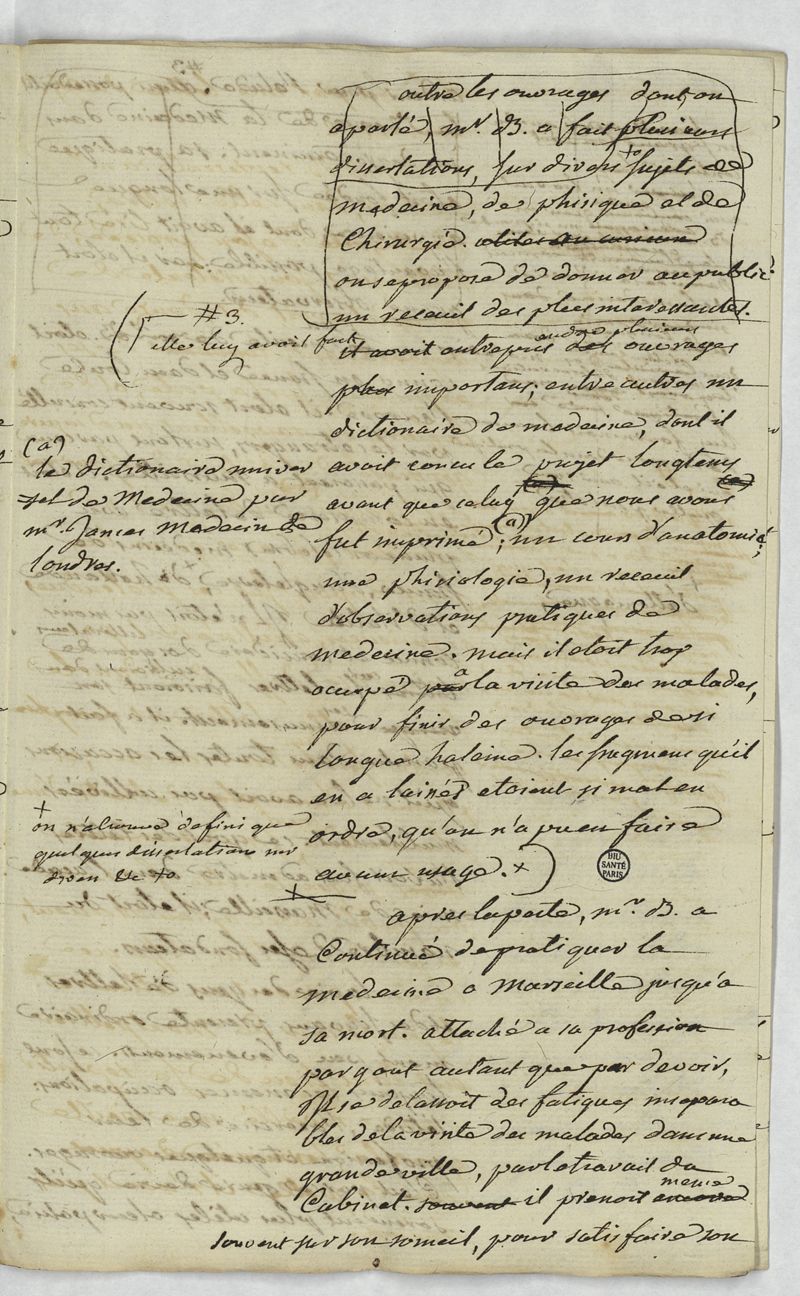 outre les ouvrages dont on
a parlé, mr. B. a fait plusieurs
dissertations, sur divers +o sujets de
medecine, de phisique et de
Chirurgie.
on se propose de donner au public
un recueil des plus interessantes.
# 3.
elle luy avoit fait
encore plusieurs
il avoit entrepris des ouvrages
plus importans; entre autres un
dictionaire de medecine, dont il
avoit concu le projet longtems
(a)
avant que celuy que nous avons
fut imprimé (a); un cours d'anatomie;
(a)
le dictionaire univer
sel de Medecine par
mr. James Medecin de
londres.
une phisiologie, un recueil
d'observations pratiques de
medecine. mais il etoit trop
a
occupé par la visite des malades,
pour finir des ouvrages de si
longue haleine. les fragmens qu'il
en a laissés etoient si mal en
ordre, qu'on n'a pu en faire
aucun usage. +
+
on n'a trouvé de fini que
quelques dissertations sur
divers &c +o
BIU
SANTÉ
PARIS
apres la peste, mr. B. a
Continué de pratiquer la
medecine a Marseille jusqu'a
sa mort. attaché a sa profession
par gout autant que par devoir,
il se delassoit des fatigues insepara
bles de la visite des malades dans une
grande ville, par le travail du
meme
Cabinet. souvent il prenoit encore
souvent sur son someil, pour satisfaire son